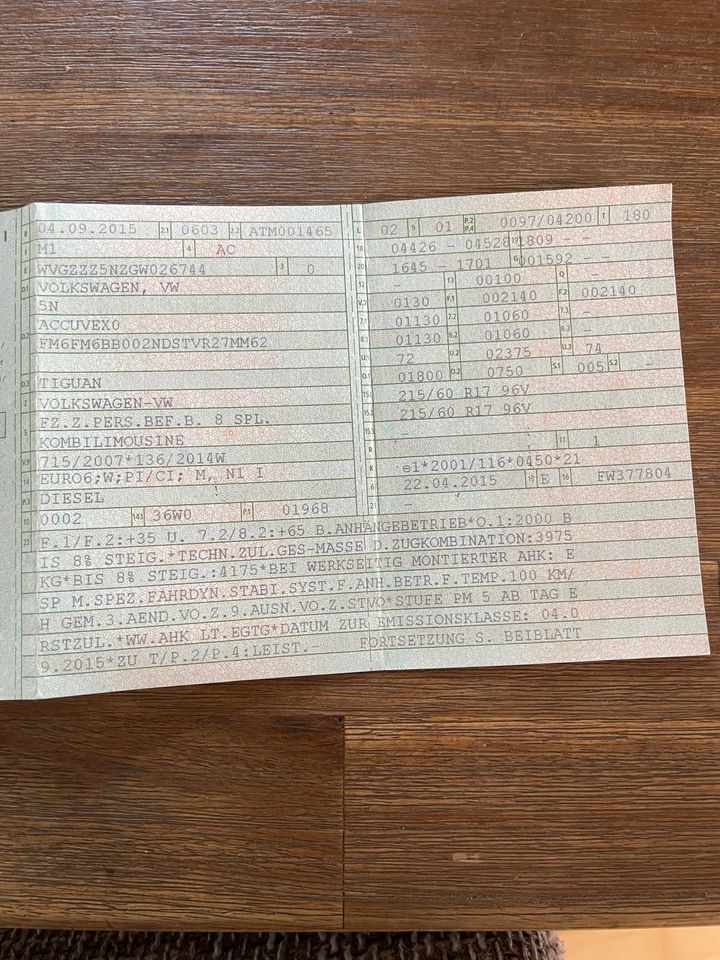 B 04.09.2015 2.1 0603 2.2 ATM001465
J M1 4 AC
E WVGZZZ5NZGW026744 3 0
D.1 VOLKSWAGEN, VW
5N
ACCUVEX0
D.2 FM6FM6BB002NDSTVR27MM62
D.3 TIGUAN
2 VOLKSWAGEN-VW
FZ.Z.PERS.BEF.B. 8 SPL.
5 KOMBILIMOUSINE
V.9 715/2007*136/2014W
14 EURO6;W;PI/CI; M, N1 I
P.3 DIESEL
10 0002 14.1 36W0 P.1 01968
L 02 9 01 P.2 P.4 0097/04200 T 180
18 04426 - 04528 19 1809 - -
20 1645 - 1701 G 001592 - -
12 - 13 00100 Q -
V.7 0130 F.1 002140 F.2 002140
7.1 01130 7.2 01060 7.3 -
8.1 01130 8.2 01060 8.3 -
U.1 72 U.2 02375 U.3 74
O.1 01800 O.2 0750 S.1 005 S.2 -
15.1 215/60 R17 96V
15.2 215/60 R17 96V
15.3 -
R 11 1
K e1*2001/116*0450*21
6 22.04.2015 17 E 16 FW377804
21 -
22 F.1/F.2:+35 U. 7.2/8.2:+65 B.ANHÄNGEBETRIEB*O.1:2000 B
IS 8% STEIG.*TECHN.ZUL.GES-MASSE D.ZUGKOMBINATION:3975
KG*BIS 8% STEIG.:4175*BEI WERKSEITIG MONTIERTER AHK: E
SP M.SPEZ.FAHRDYN.STABI.SYST.F.ANH.BETR.F.TEMP.100 KM/
H GEM.3.AEND.VO.Z.9.AUSN.VO.Z.STVO*STUFE PM 5 AB TAG E
RSTZUL.*WW.AHK LT.EGTG*DATUM ZUR EMISSIONSKLASSE: 04.0
9.2015*ZU T/P.2/P.4:LEIST.- FORTSETZUNG S. BEIBLATT